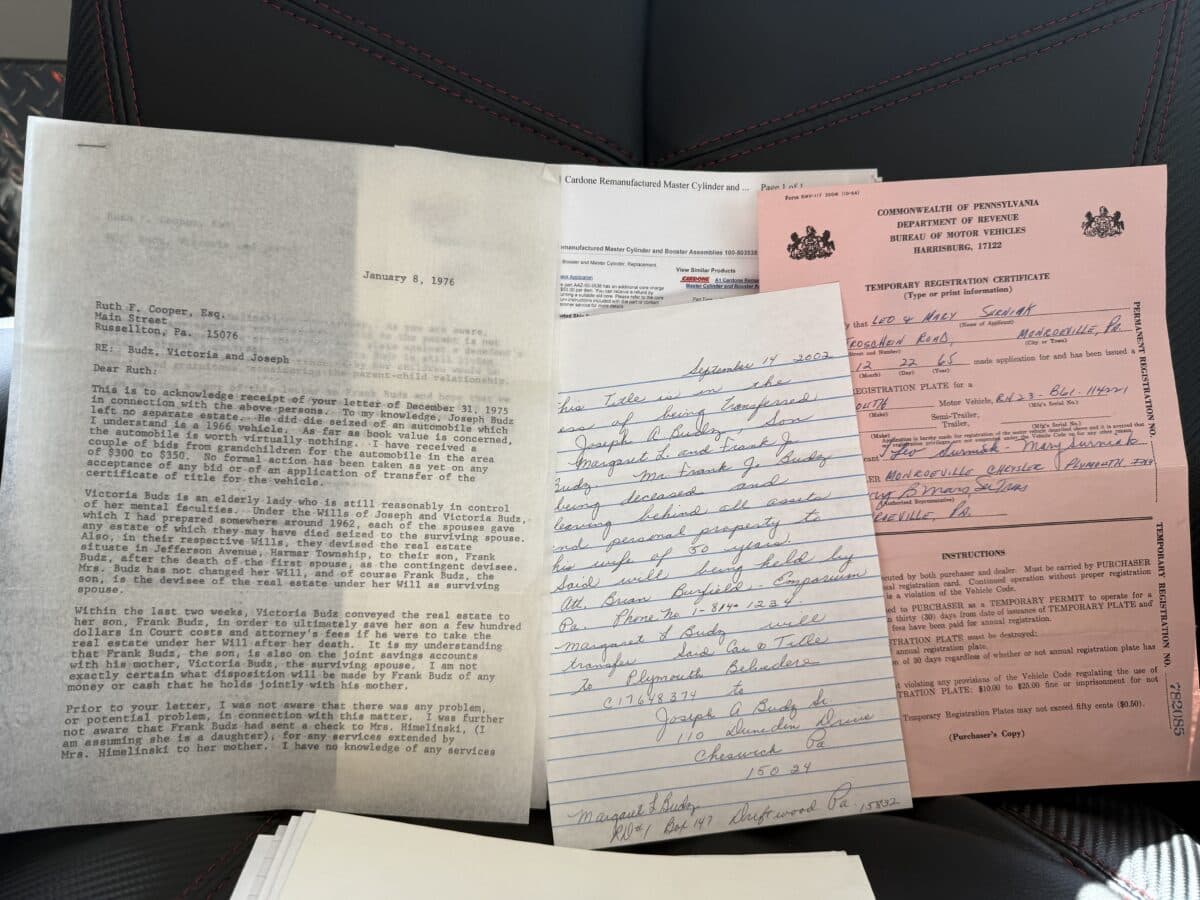 January 8, 1976
Ruth F. Cooper, Esq.
Main Street
Russellton, Pa. 15076
RE: Budz, Victoria and Joseph
parent-child relationship.
Dear Ruth:
This is to acknowledge receipt of your letter of December 31, 1975
in connection with the above persons. To my knowledge, Joseph Budz
left no separate estate. He did die seized of an automobile which
I understand is a 1966 vehicle. As far as book value is concerned,
the automobile is worth virtually nothing. I have received a
couple of bids from grandchildren for the automobile in the area
of $300 to $350. No formal action has been taken as yet on any
acceptance of any bid or of an application of transfer of the
certificate of title for the vehicle.
Victoria Budz is an elderly lady who is still reasonably in control
of her mental faculties. Under the Wills of Joseph and Victoria Budz,
which I had prepared somewhere around 1962, each of the spouses gave
any estate of which they may have died seized to the surviving spouse.
Also, in their respective Wills, they devised the real estate
situate in Jefferson Avenue, Harmar Township, to their son, Frank
Budz, after the death of the first spouse, as the contingent devisee.
Mrs. Budz has not changed her Will, and of course Frank Budz, the
son, is the devisee of the real estate under her Will as surviving
spouse.
Within the last two weeks, Victoria Budz conveyed the real estate to
her son, Frank Budz, in order to ultimately save her son a few hundred
dollars in Court costs and attorney's fees if he were to take the
real estate under her Will after her death. It is my understanding
that Frank Budz, the son, is also on the joint savings accounts
with his mother, Victoria Budz, the surviving spouse. I am not
exactly certain what disposition will be made by Frank Budz of any
money or cash that he holds jointly with his mother.
Prior to your letter, I was not aware that there was any problem,
or potential problem, in connection with this matter. I was further
not aware that Frank Budz had sent a check to Mrs. Himelinski, (I
am assuming she is a daughter), for any services extended by
Mrs. Himelinski to her mother. I have no knowledge of any services
Cardone Remanufactured Master Cylinder and ... Page 1 of 1
Remanufactured Master Cylinder and Booster Assemblies 100-503538
Booster and Master Cylinder, Replacement
View Similar Products
CARDONE A1 Cardone
Master Cylinder and Booster
September 14 2002
his Title is in the
ess of being transferred
Joseph A Budz Son
Margaret L. and Frank J.
Budz Mr. Frank J. Budz
being deceased and
leaving behind all assets
and personal property to
his wife of 50 years.
Said will being held by
Att. Brian Burfield - Emporium
Pa. Phone No 1-814- 1234
Margaret L Budz will
transfer Said Car & Title
To Plymouth Belvedere
C17648374 to
Joseph A Budz Sr
110 Dunedin Drive
Cheswick Pa
15024
Margaret L Budz
RD#1 Box 147 Driftwood Pa 15832
COMMONWEALTH OF PENNSYLVANIA
DEPARTMENT OF REVENUE
BUREAU OF MOTOR VEHICLES
HARRISBURG, 17122
TEMPORARY REGISTRATION CERTIFICATE
(Type or print information)
that LEO & MARY SURNIAK
(Name of Applicant)
ROAD, MONROEVILLE, PA.
(Street and Number) (City or Town)
12 22 65 made application for and has been issued a
(Month) (Day) (Year)
REGISTRATION PLATE for a
OUTH Motor Vehicle,
(Make) (Mfg's Serial No.)
Semi-Trailer,
Trailer,
(Make) (Mfg's Serial No.)
Leo Surniak Mary Surniak
ER MONROEVILLE CHRYSLER PLYMOUTH
(Authorized Representative)
OEVILLE, PA.
INSTRUCTIONS
cuted by both purchaser and dealer. Must be carried by PURCHASER
al registration card. Continued operation without proper registration
is a violation of the Vehicle Code.
ed to PURCHASER as a TEMPORARY PERMIT to operate for a
thirty (30) days from date of issuance of TEMPORARY PLATE and
fees have been paid for annual registration.
TRATION PLATE must be destroyed:
annual registration plate.
of 30 days regardless of whether or not annual registration plate has
violating any provisions of the Vehicle Code regulating the use of
TRATION PLATE: $10.00 to $25.00 fine or imprisonment for not
Temporary Registration Plates may not exceed fifty cents ($0.50).
(Purchaser's Copy)
PERMANENT REGISTRATION NO.
TEMPORARY REGISTRATION NO. 782085